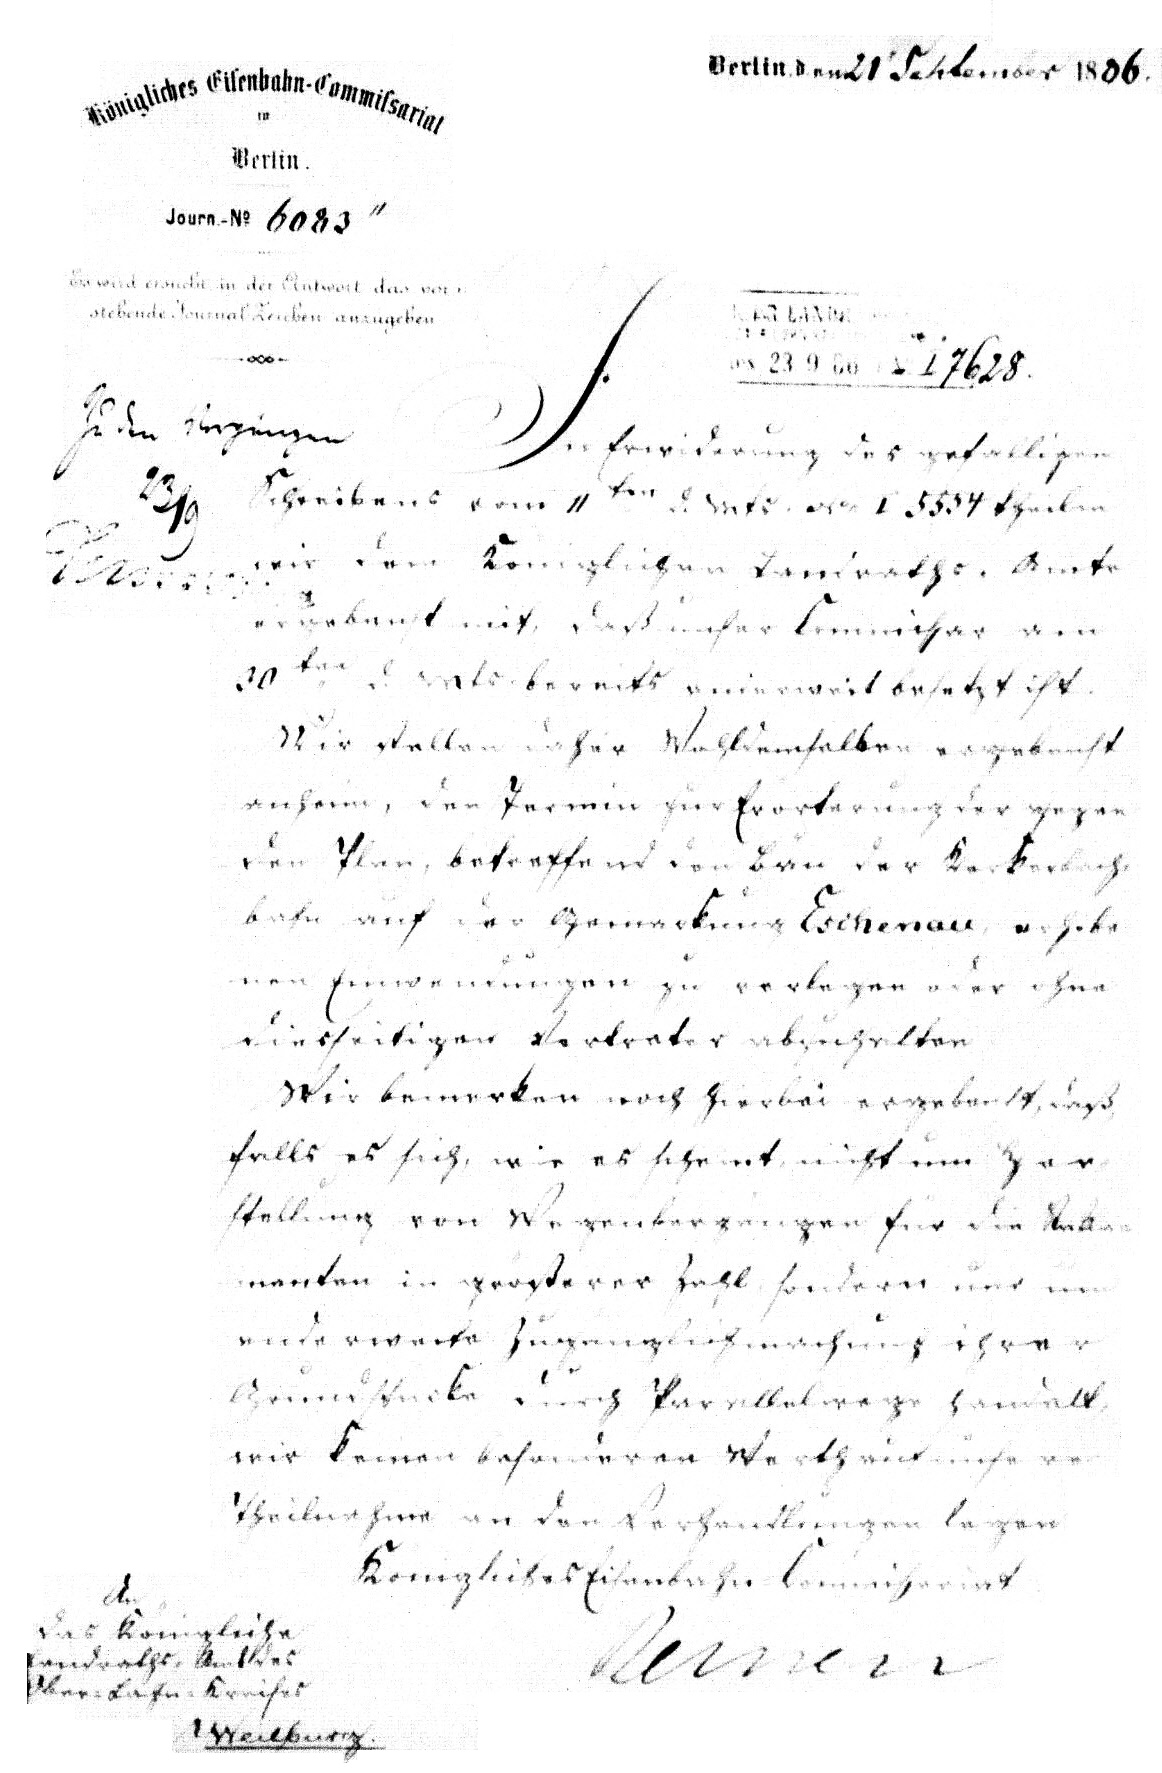 Königliches Eisenbahn-Commissariat
in
Berlin.
Journ.-No 6083"
Es wird ersucht, in der Antwort das vor-
stehende Journal Zeichen anzugeben
Berlin, den 21 September 1886.
23 9 86 I 7628.
Zu den Vorgängen
23/9
In Erwiderung des gefälligen
Schreibens vom 11ten d. Mts. No I 5554 theilen
wir dem Königlichen Landraths-Amte
ergebenst mit, daß unser Commissar am
30ten d. Mts bereits anderweit besetzt ist.
Wir stellen daher Wohldemselben ergebenst
anheim, den Termin zur Erörterung der gegen
den Plan, betreffend den Bau der Kerkerbach-
bahn auf der Gemarkung Eschenau, erhobe
nen Einwendungen zu verlegen oder ohne
diesseitigen Vertreter abzuhalten
Wir bemerken noch hierbei ergebenst, daß,
falls es sich, wie es scheint, nicht um Her-
stellung von Wegenbergängen für die Rekla-
manten in größerer Zahl sondern nur um
anderweite Zugänglichmachung ihrer
Grundstücke durch Parallelwege handelt,
wir keinen besonderen Werth auf unsere
Theilnahme an den Verhandlungen legen
Königliches Eisenbahn Commissariat
An
das Königliche
Landraths-Amt des
Ober-Lahn-Kreises
Weilburg.